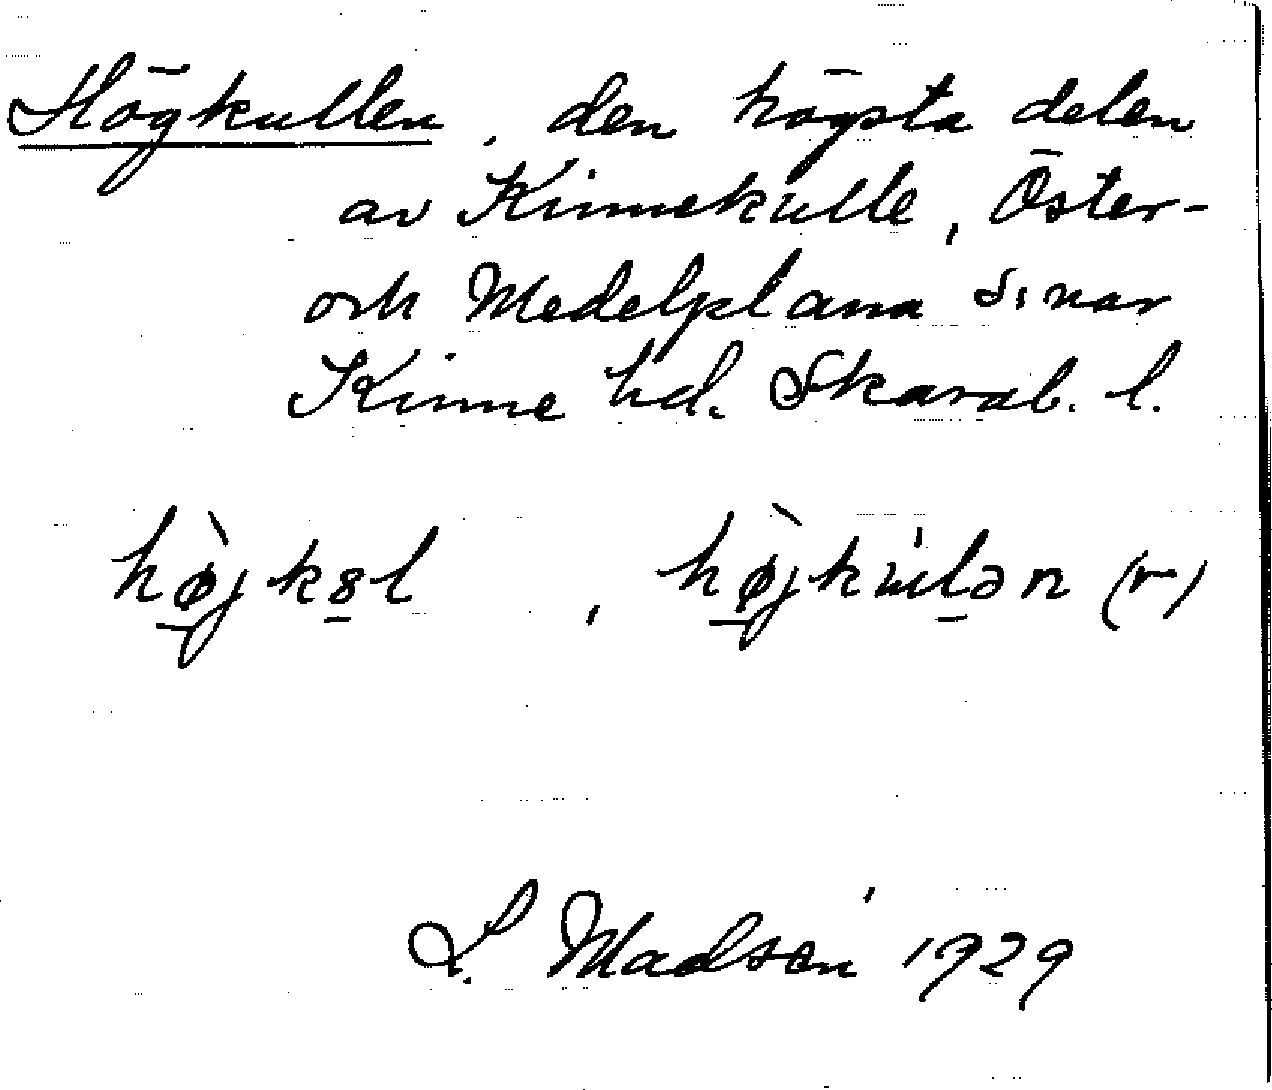 Högkullen, den högsta delen
av Kinnekulle, Öster-
och Medelplana s:nar
Kinne hd. Skarab. l.
hø̀jkəl, hø̀jkulən (r)
L. Madsén 1929